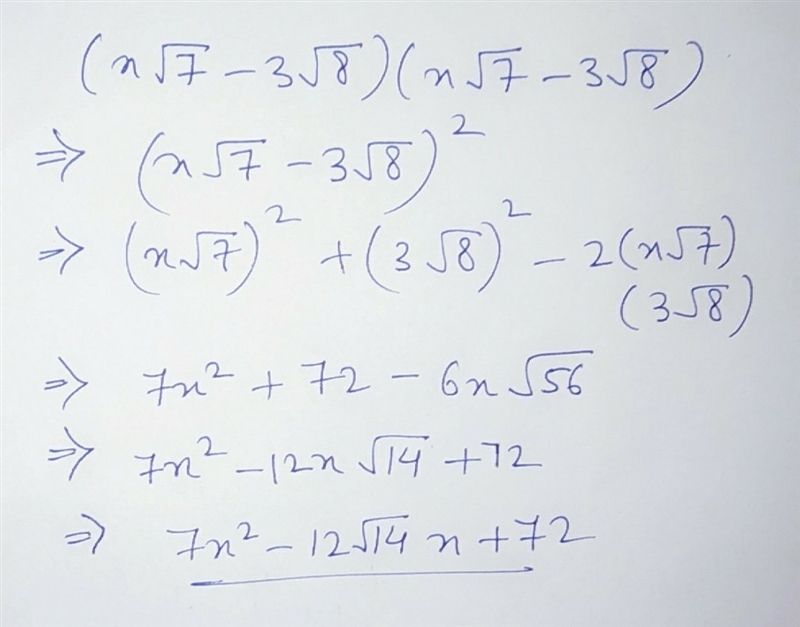 (x√7 - 3√8)(x√7 - 3√8)
⇒ (x√7 - 3√8)²
⇒ (x√7)² + (3√8)² - 2(x√7)
(3√8)
⇒ 7x² + 72 - 6x√56
⇒ 7x² - 12x√14 + 72
⇒ 7x² - 12√14 x + 72